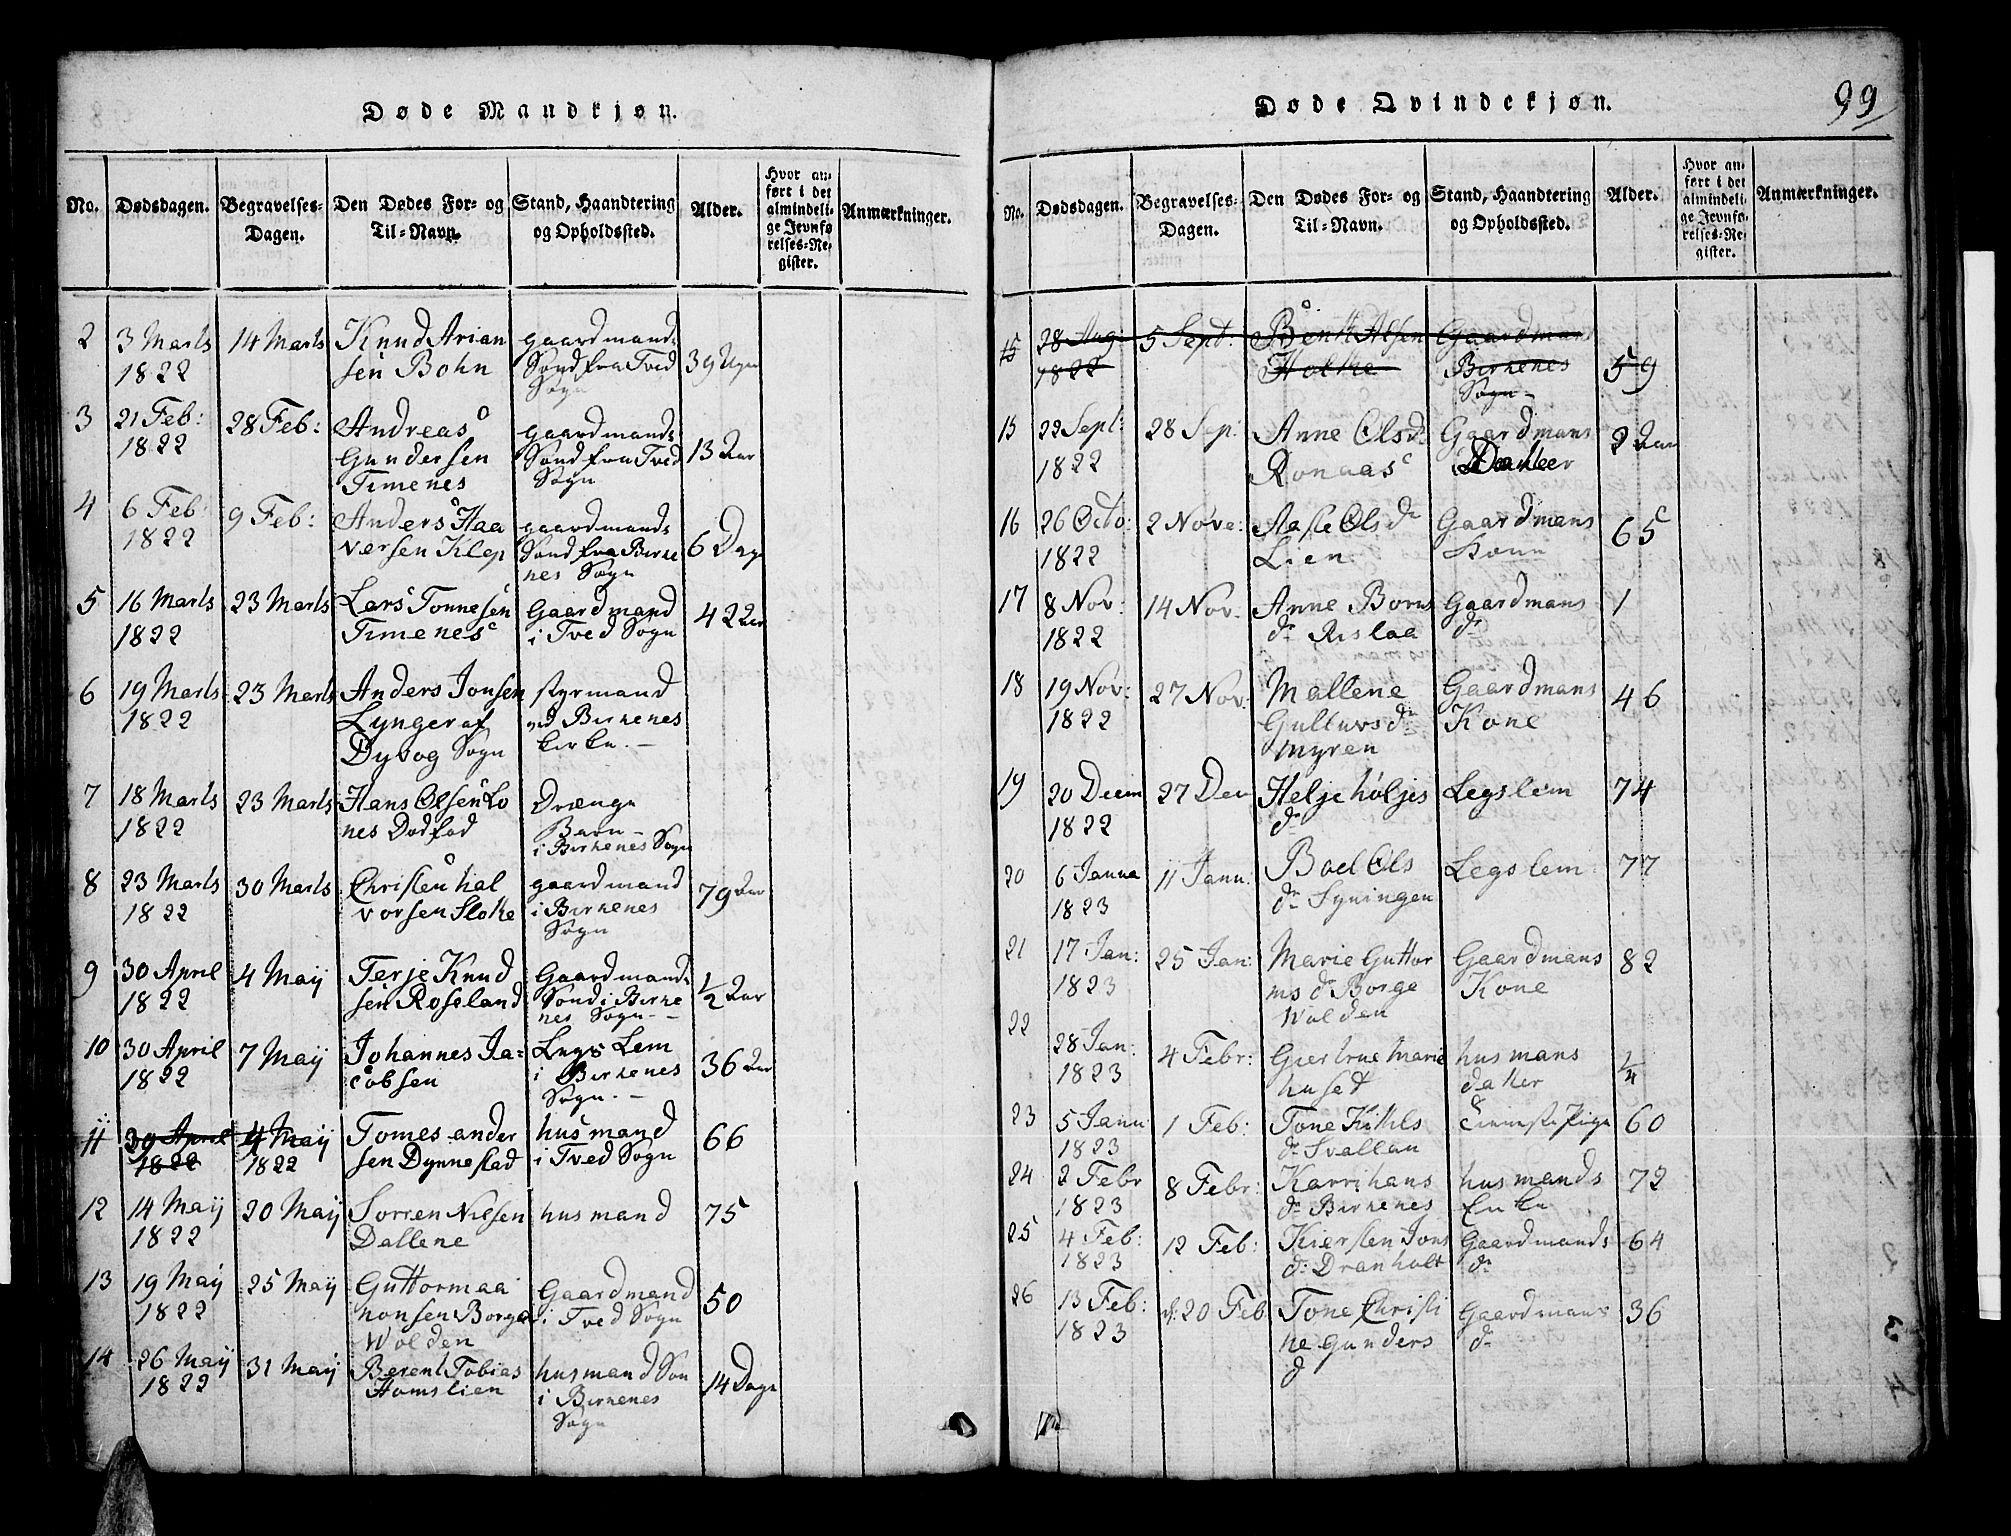 Døde Mandkjøn.
No. Dødsdagen. Begravelses-Dagen. Den Dødes For- og Til-Navn. Stand, Haandtering og Opholdssted. Alder. Hvor anført i det almindelige Jevnførelses-Register. Anmærkninger.
2 3 Marts 14 Marts Knud Arian gaardmands
1822 sen Bohn Sønd fra Tved 39 Uger
Sogn
3 21 Feb: 28 Feb: Andreas gaardmands
1822 Gundersen Sønd fra Tved 13 Aar
Timenes Sogn
4 6 Feb: 9 Feb: Anders Haa gaardmands
1822 versen Klep Sønd fra Birke 6 Dage
nes Sogn
5 16 Marts 23 Marts Lars Tonnesen Gaardmand 42 Aar
1822 Timenes i Tved Sogn
6 19 Marts 23 Marts Anders Jonsen styrmand
1822 Lynger af ved Birkenes
Dybog Sogn kirke. —
7 18 Marts 23 Marts Hans Olsen Lo Drænge
1822 nes Dødfød Barn —
i Birkenes Sogn
8 23 Marts 30 Marts Christen hal gaardmand 79 Aar
1822 vorsen Stoke i Birkenes
Sogn
9 30 April 4 Maij Terje Knud Gaardmands
1822 sen Rosseland Sønd i Birke ½ Aar
nes Sogn. —
10 30 April 7 Maij Johannes Ja= Legs Lem 36 Aar
1822 cobsen i Birkenes
Sogn. —
11 30 April 4 Maij Tomes ander husmand 66
1822 1822 sen Dynnestad i Tved Sogn
12 14 Maij 20 Maij Sorren Nilsen husmand 75
1822 Dallene
13 19 Maij 25 Maij Guttorm aa Gaardmand 50
1822 nonsen Borge i Tved Sogn
Wolden
14 26 Maij 31 Maij Berent Tobias husmand Søn 14 Dage
1822 Homslien i Birkenes
Sogn
Døde Qvindekjøn.
99
No. Dødsdagen. Begravelses-Dagen. Den Dødes For- og Til-Navn. Stand, Haandtering og Opholdssted. Alder. Hvor anført i det almindelige Jevnførelses-Register. Anmærkninger.
15 28 Aug: 5 Sept: Gaardman
1822 Birkenes 59
Sogn —
15 22 Sept: 28 Sep. Anne Olsdr Gaardmans 2 Aar
1822 Ronaas
16 26 Octo: 2 Nove: Aasle Olsdr Gaardmans 65
1822 Lien
17 8 Nov: 14 Nov. Anne Borns Gaardmans 1
1822 dr Rislaa dr
18 19 Nov: 27 Nov. Mallene Gaardmans 46
1822 Gulluvs dr Kone
Myren
19 20 Decm 27 Dec Helje höljes Legslem 74
1822 dr
20 6 Janua 11 Janu: Boel Ols Legslem 77
1823 dr Syningen
21 17 Jan: 25 Jan: Marie Guttor Gaardmans 82
1823 ms dr Borge Kone
Wolden
22 28 Jan: 4 Febr: Giertrue Marie husmans ¼
1823 huset dater
23 5 Janu 1 Feb: Tone Kittils Tieniste Pige 60
1823 dr Svallan
24 2 Febr 8 Febr: Karri hans husmands 72
1823 dr Birkenes Enke
25 4 Feb: 12 Feb: Kiersten Jons Gaardmands 64
1823 dr Dranholt dr
26 13 Feb: d: 20 Feb Tone Christi Gaardmans 36
1823 ne Gunders dr
d